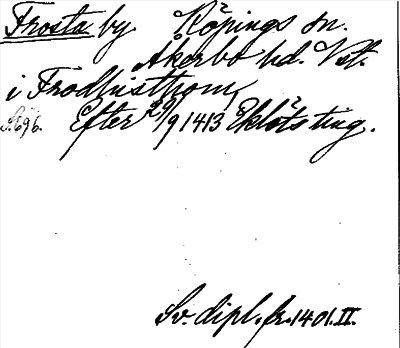 Frosta by Köpings sn.
Åkerbo hd. Vstl.
i Frodhisthorp
S. 696. Efter 29/9 1413 Eklöts ting.
Sv. dipl. fr. 1401. II.